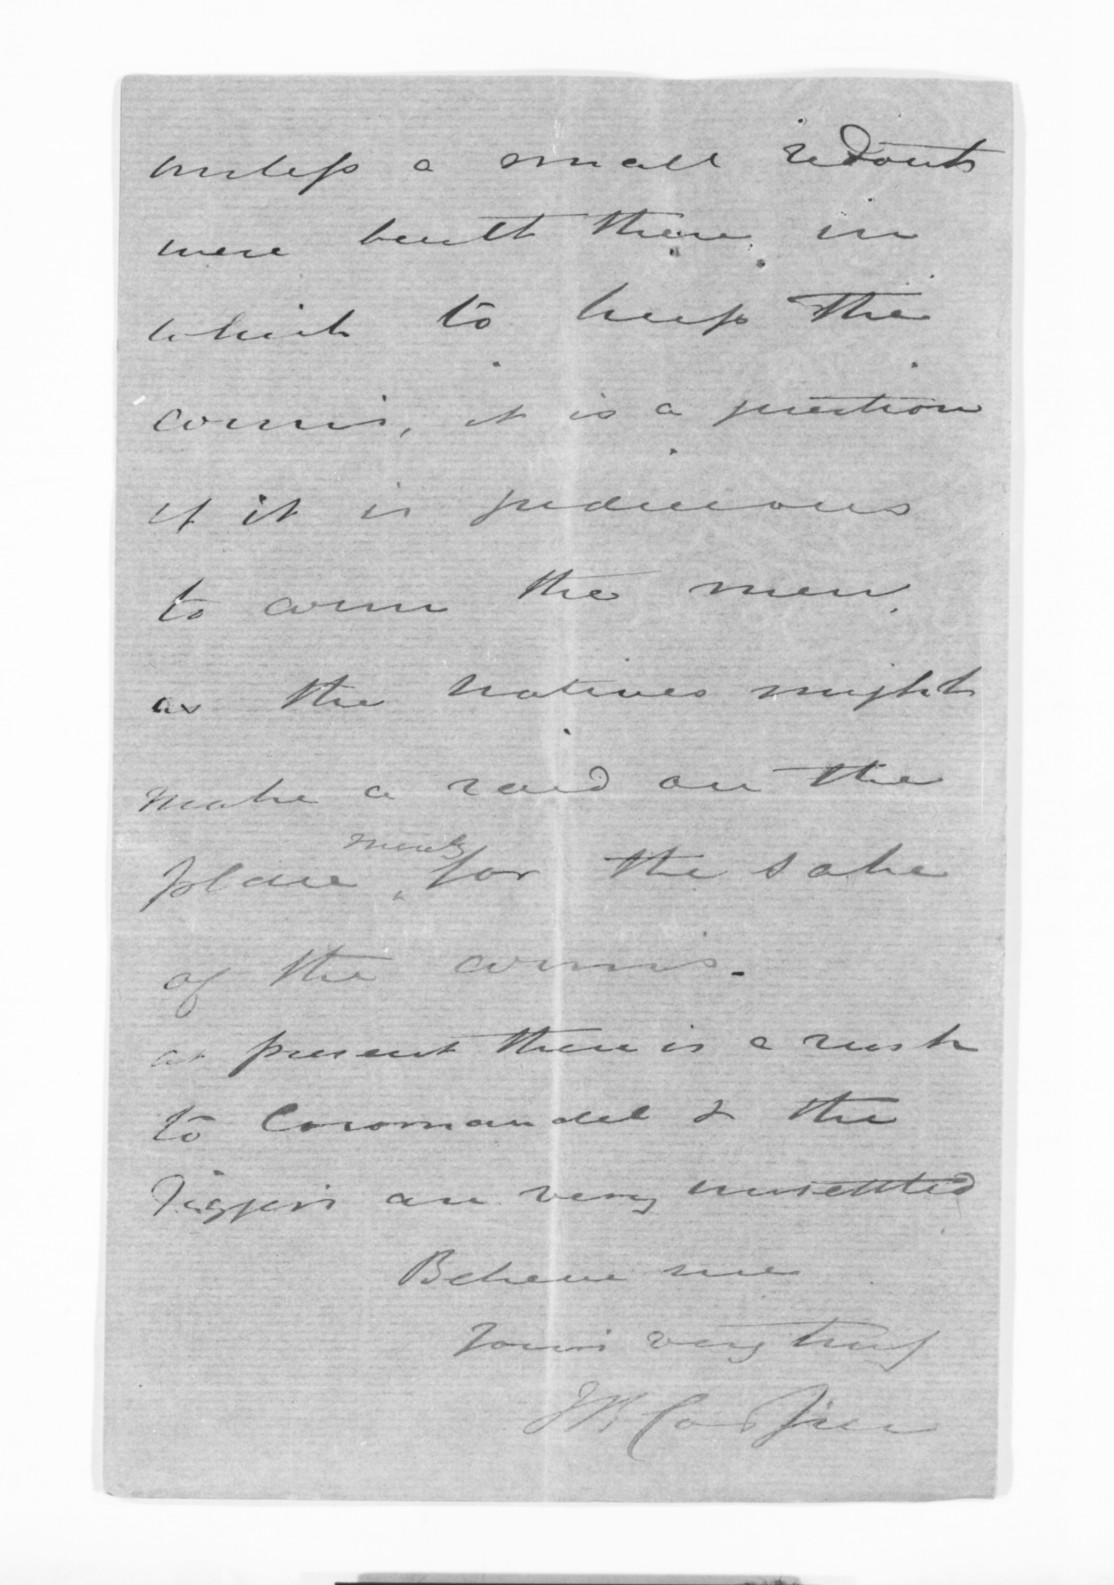 unless a small redoubt
were built there in
which to keep the
arms, it is a question
if it is judicious
to arm the men,
as the natives might
make a raid on the
place merely for the sake
of the arms.
at present there is a rush
to Coromandel & the
Diggers are very unsettled
Believe me
Yours very truly